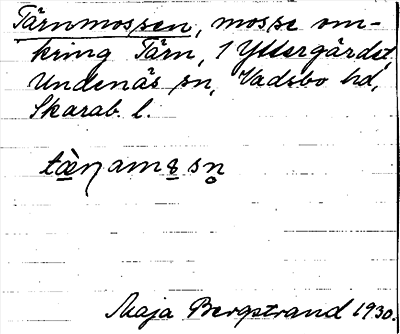 Tärnmossen, mosse om-
kring Tärn, 1 Yttergärdet,
Undenäs sn, Vadsbo hd,
Skarab. l.
Maja Bergstrand 1930.